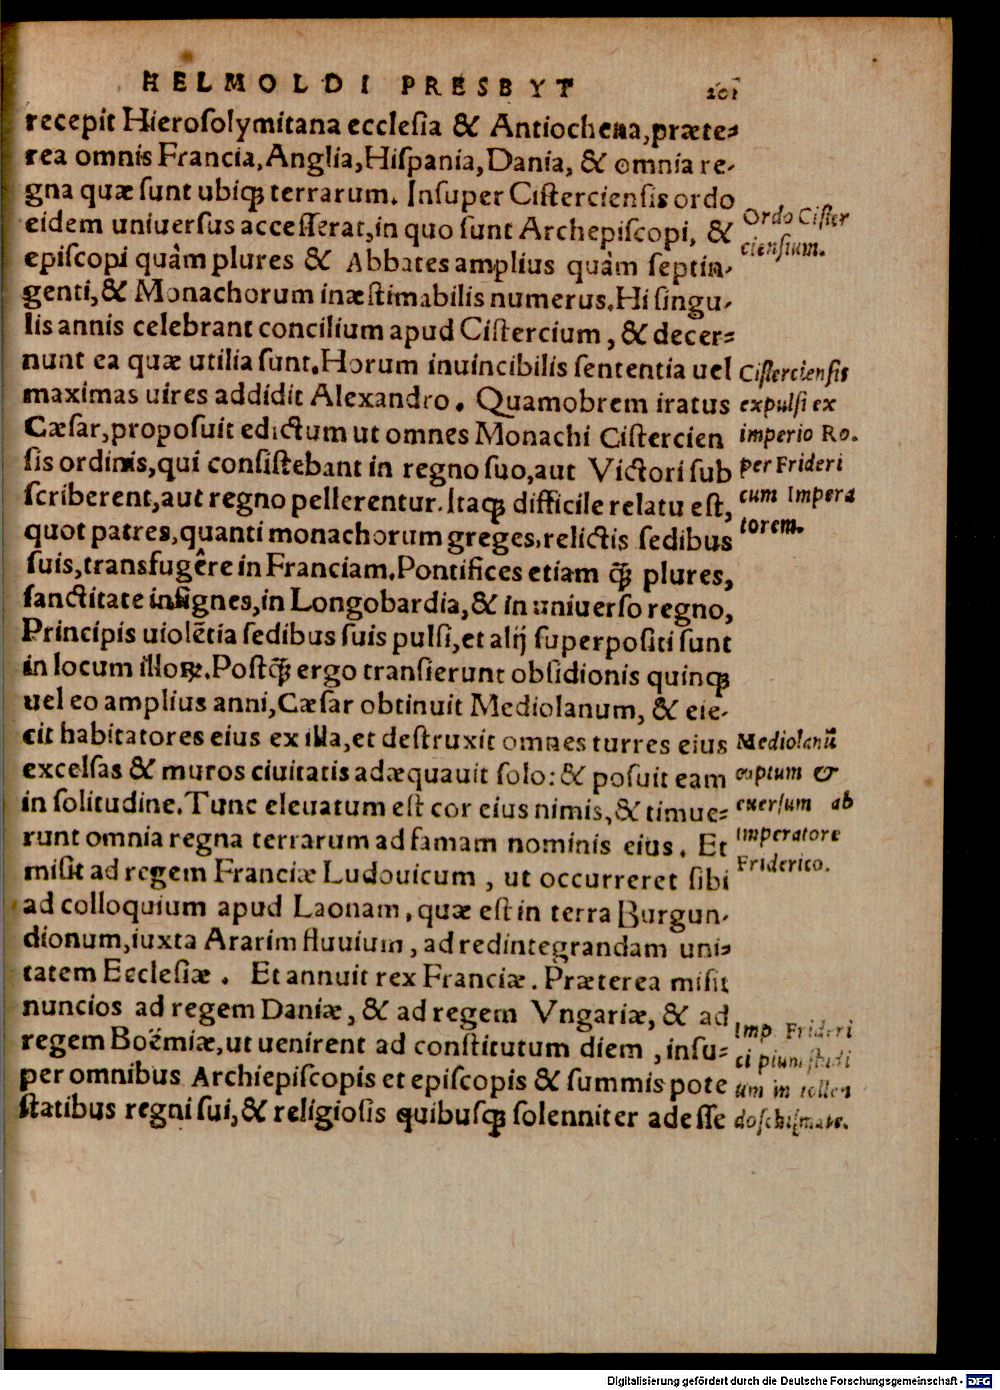 HELMOLDI PRESBYT 201
recepit Hierosolymitana ecclesia & Antiochena, præte⸗
rea omnis Francia, Anglia, Hispania, Dania, & omnia re-
gna quæ sunt ubiqꝫ terrarum. Insuper Cisterciensis ordo
eidem uniuersus accesserat, in quo sunt Archepiscopi, &
episcopi quàm plures & Abbates amplius quàm septin-
genti, & Monachorum inæstimabilis numerus. Hi singu-
lis annis celebrant concilium apud Cistercium, & decer⸗
nunt ea quæ utilia sunt. Horum inuincibilis sententia uel
maximas uires addidit Alexandro. Quamobrem iratus
Cæsar, proposuit edictum ut omnes Monachi Cistercien
sis ordinis, qui consistebant in regno suo, aut Victori sub
scriberent, aut regno pellerentur. Itaqꝫ difficile relatu est,
quot patres, quanti monachorum greges, relictis sedibus
suis, transfugêre in Franciam. Pontifices etiam q̃ꝫ plures,
sanctitate insignes, in Longobardia, & in uniuerso regno,
Principis uiolẽtia sedibus suis pulsi, et alij superpositi sunt
in locum illoꝝ. Postq̃ꝫ ergo transierunt obsidionis quinqꝫ
uel eo amplius anni, Cæsar obtinuit Mediolanum, & eie-
cit habitatores eius ex illa, et destruxit omnes turres eius
excelsas & muros ciuitatis adæquauit solo: & posuit eam
in solitudine. Tunc eleuatum est cor eius nimis, & timue⸗
runt omnia regna terrarum ad famam nominis eius. Et
misit ad regem Franciæ Ludouicum, ut occurreret sibi
ad colloquium apud Laonam, quæ est in terra Burgun-
dionum, iuxta Ararim fluuium, ad redintegrandam uni⸗
tatem Ecclesiæ. Et annuit rex Franciæ. Præterea misit
nuncios ad regem Daniæ, & ad regem Vngariæ, & ad
regem Boëmiæ, ut uenirent ad constitutum diem, insu⸗
per omnibus Archiepiscopis et episcopis & summis pote
statibus regni sui, & religiosis quibusqꝫ solenniter adesse
Ordo Cister
ciensium.
Cisterciensis
expulsi ex
imperio Ro.
per Frideri
cum Impera
torem.
Mediolanũ
captum &
euersum ab
Imperatore
Friderico.
Imp Frideri
ci pium studi
um in tollen
do schismate.
Digitalisierung gefördert durch die Deutsche Forschungsgemeinschaft - DFG